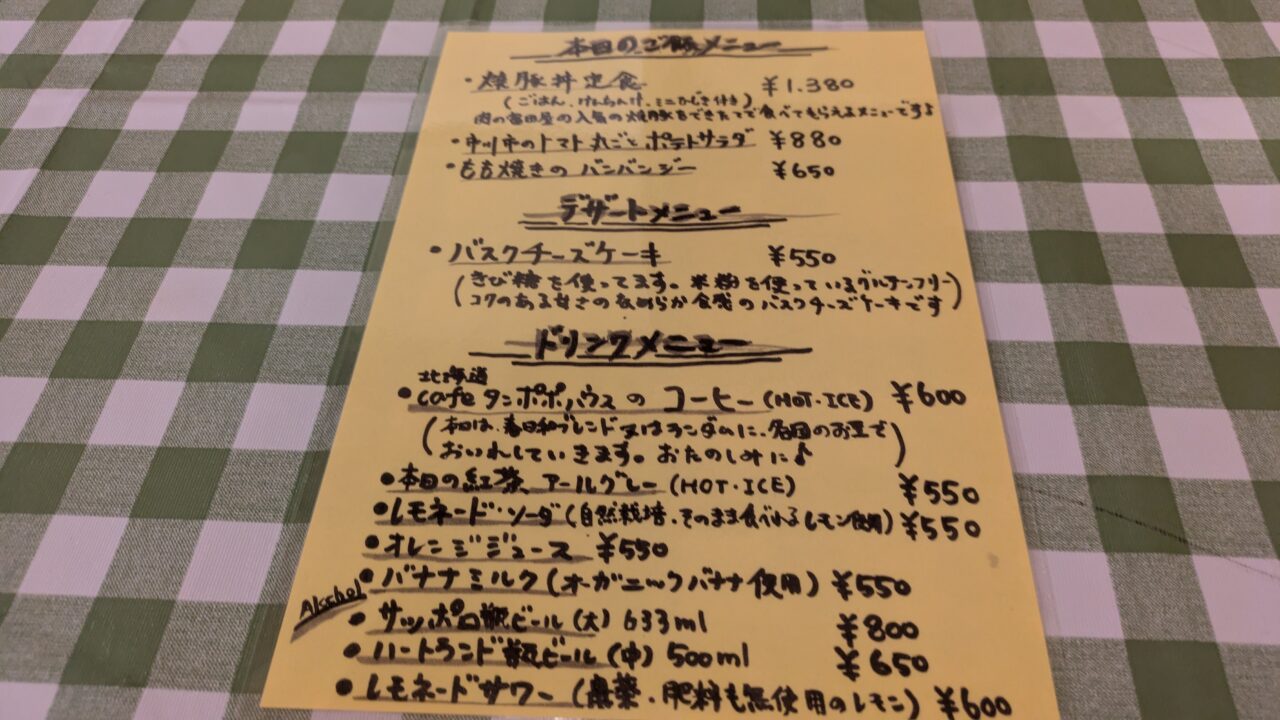 本日のご飯メニュー
・焼豚丼定食 ¥1.380
(ごはん、けんちん汁、ミニひじき付き)
肉の富田屋の人気の焼豚をできたてで食べてもらえるメニューですよ
・市川市のトマト丸ごとポテトサラダ ¥880
・もも焼きのバンバンジー ¥650
デザートメニュー
・バスクチーズケーキ ¥550
(きび糖を使ってます。米粉を使っているグルテンフリー
コクのある甘さのなめらか食感のバスクチーズケーキです)
ドリンクメニュー
北海道
・cafeタンポポハウスのコーヒー(HOT・ICE) ¥600
(本日は、春日和ブレンド又はランダムに、各国のお豆で
おいれしていきます。おたのしみに♪)
・本日の紅茶 アールグレー(HOT・ICE) ¥550
・レモネード・ソーダ(自然栽培・そのまま食べれるレモン使用) ¥550
・オレンジジュース ¥550
・バナナミルク(オーガニックバナナ使用) ¥550
Alcohol
・サッポロ瓶ビール(大) 633ml ¥800
・ハートランド瓶ビール(中) 500ml ¥650
・レモネードサワー(農薬・肥料も無使用のレモン) ¥600